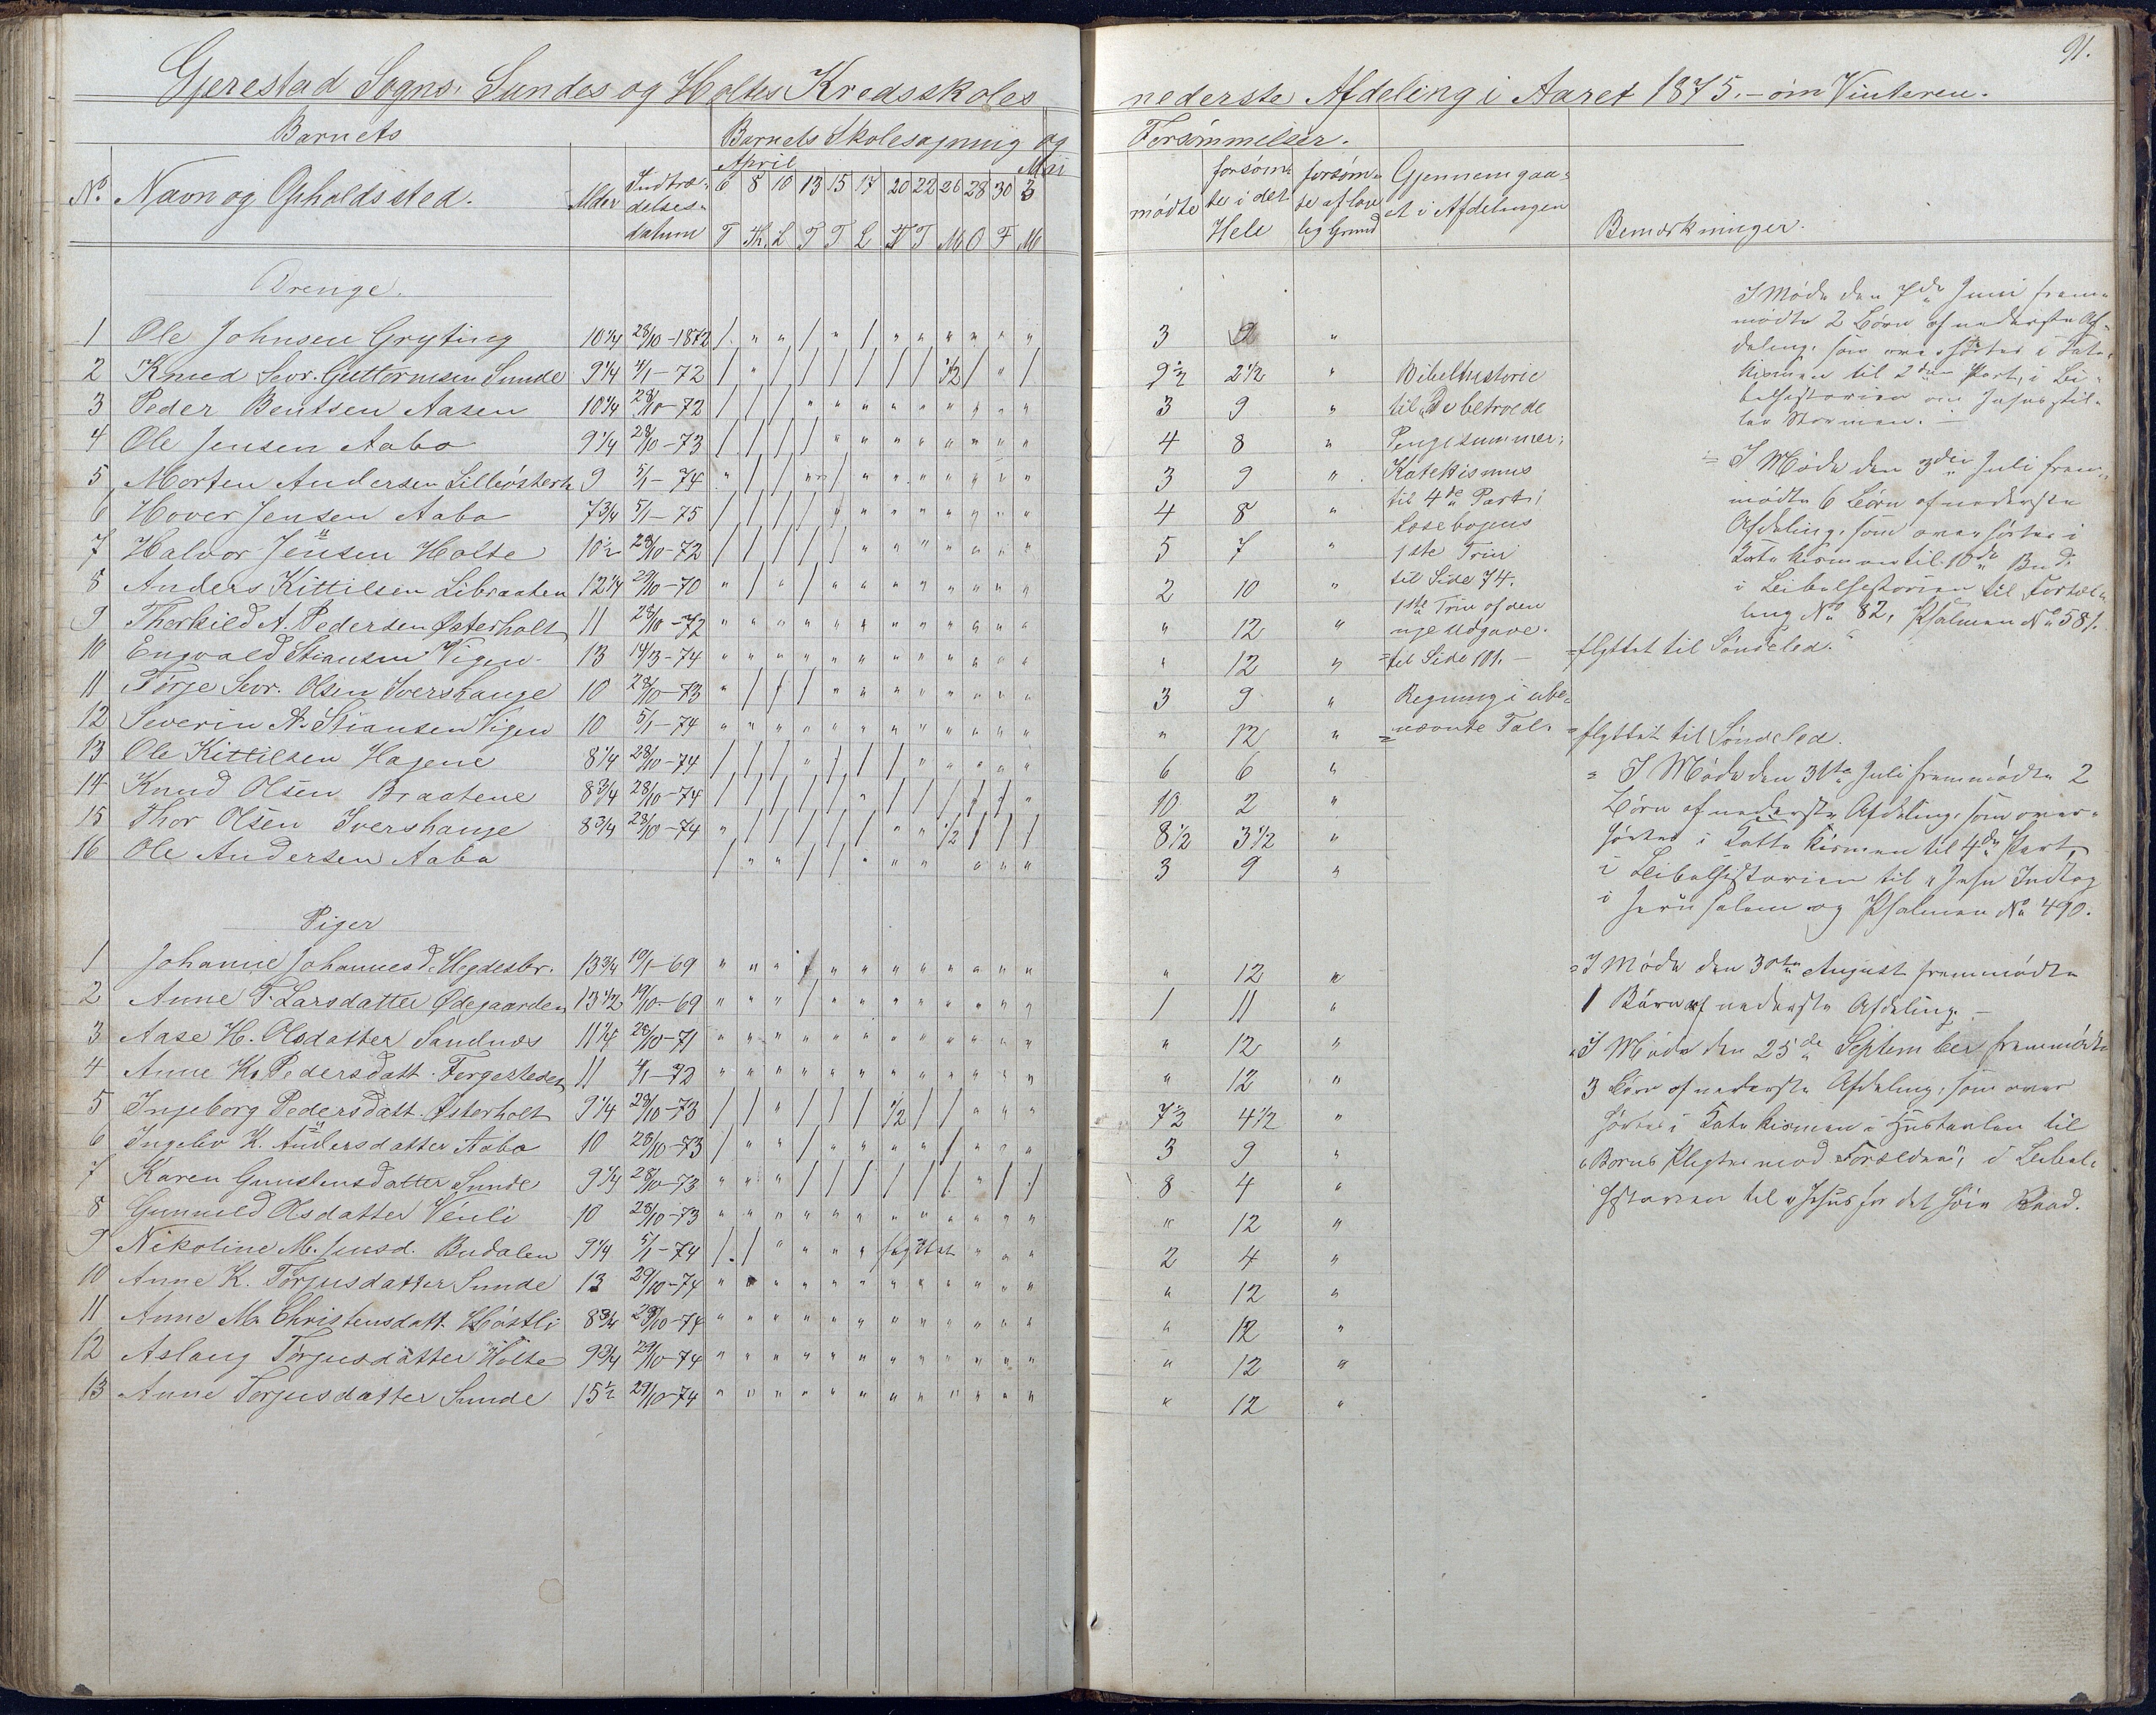 91.
Gjerestad Sogns, Sundes og Holtes Kredsskoles nederste Afdeling i Aaret 1875. – om Vinteren.
Barnets | Barnets Skolesøgning og Forsømmelser.
No. | Navn og Opholdssted. | Alder | Indtræ-delses-datum | April 6 8 10 13 15 17 20 22 26 28 30 Mai 3 | mødte | forsøm-te i det Hele | forsøm-te af lov-lig Grund | Gjennemgaa-et i Afdelingen | Bemærkninger.
T Th. L T T L T T M O F M
Drenge.
1 Ole Johnsen Gryting 10 1/4 28/10-1872 / " " / " / " " " " " " 3 9 "
2 Knud Sevr. Guttormsen Sunde 9 1/4 4/1-72 / " / / / / / / 1/2 / " / 9 1/2 2 1/2 " Bibelhistorie
3 Peder Bentsen Aasen 10 1/4 28/10-72 / / / " " " " " " " " " 3 9 " til "De betroede
4 Ole Jensen Aabo 9 1/4 28/10-73 / / / / " " " " " " " " 4 8 " Pengesummer;
5 Morten Andersen Lilleøsterh 9 5/1-74 " / / " / " " " " " " " 3 9 " Katekismus
6 Hover Jensen Aabo 7 3/4 5/1-75 / / / / " " " " " " " " 4 8 " til 4de Part;
7 Halvor Jensen Holte 10 1/2 28/10-72 / / / / / " " " " " " " 5 7 " Læsebogens 1ste Trin
8 Anders Kittilsen Libraaten 12 1/4 29/10-70 " / " / " " " " " " " " 2 10 " til Side 74.
9 Therkild A. Pedersen Østerholt 11 28/10-72 " " " " " " " " " " " " " 12 " 1ste Trin af den nye Udgave
10 Engvald Stiansen Vigen 13 14/3-74 " " " " " " " " " " " " " 12 " til Side 101. – = flyttet til Søndeled.
11 Tørje Sevr. Olsen Ivershauge 10 28/10-73 " / / / " " " " " " " " 3 9 " Regning i ube-
12 Severin A. Stiansen Vigen 10 5/1-74 " " " " " " " " " " " " " 12 " nævnte Tal. = flyttet til Søndeled.
13 Ole Kittilsen Hagene 8 1/4 28/10-74 / / / " / / / " " " " " 6 6 "
14 Knud Olsen Braatene 8 3/4 28/10-74 / / / / / " / / / / / " 10 2 "
15 Thor Olsen Ivershauge 8 3/4 28/10-74 " / / / / / " " 1/2 / / / 8 1/2 3 1/2 "
16 Ole Andersen Aabo / " " / / " " " " " " 3 9 "
Piger
1 Johanne Johannesd. Hegdesbr. 13 3/4 10/1-69 " " " " " " " " " " " " " 12 "
2 Anne T. Larsdatter Ødegaarden 13 1/2 19/10-69 " " " / " " " " " " " " 1 11 "
3 Aase H. Olsdatter Sandnæs 11 1/4 28/10-71 " " " " " " " " " " " " " 12 "
4 Anne K. Pedersdatt. Fergesteden 11 4/1-72 " " " " " " " " " " " " " 12 "
5 Ingeborg Pedersdatt. Østerholt 9 1/4 28/10-73 / / " / / / 1/2 / / " " " 7 1/2 4 1/2 "
6 Ingebor K. Andersdatter Aabo 10 28/10-73 / " " / " " " " / " " " 3 9 "
7 Karen Gunstensdatter Sunde 9 1/4 28/10-73 " " " / / / / / / " / / 8 4 "
8 Gunnild Olsdatter Venli 10 28/10-73 " " " " " " " " " " " " " 12 "
9 Nikoline M. Jensd. Budalen 9 1/4 5/1-74 / / " " " " " " " 2 4 "
10 Anne K. Torjusdatter Sunde 13 29/10-74 " " " " " " " " " " " " " 12 "
11 Anne M. Christensdatt. Høstli 8 3/4 28/10-74 " " " " " " " " " " " " " 12 "
12 Aslaug Torjusdatter Holte 9 3/4 29/10-74 " " " " " " " " " " " " " 12 "
13 Anne Torjusdatter Sunde 15 1/2 29/10-74 " " " " " " " " " " " " " 12 "
I Møde den 7de Juni frem-
mødte 2 Børn af nederste Af-
deling, som overhørtes i Kate-
kismen til 2den Part, i Bi-
belhistorien om Jesus stil-
ler Stormen. –
= I Møde den 3die Juli frem-
mødte 6 Børn af nederste
Afdeling, som overhørtes i
Katekismen til 10de Bud.
i Bibelhistorien til Fortæl-
ling No 82, Psalmen No 581.
= I Møde den 31te Juli fremmødte 2
Børn af nederste Afdeling, som over-
hørtes i Kattekismen til 4de Part,
i Bibelhistorien til "Jesu Indtog
i Jerusalem og Psalmen No 490.
= I Møde den 30te August fremmødte
1 Børn af nederste Afdeling. –
= I Møde den 25de September fremmødte
3 Børn af nederste Afdeling, som over
hørtes i Katekismen i Hustavlen til
"Børns Pligter mod Forældre", i Bibel-
historien til "Jesus for det høie Raad.